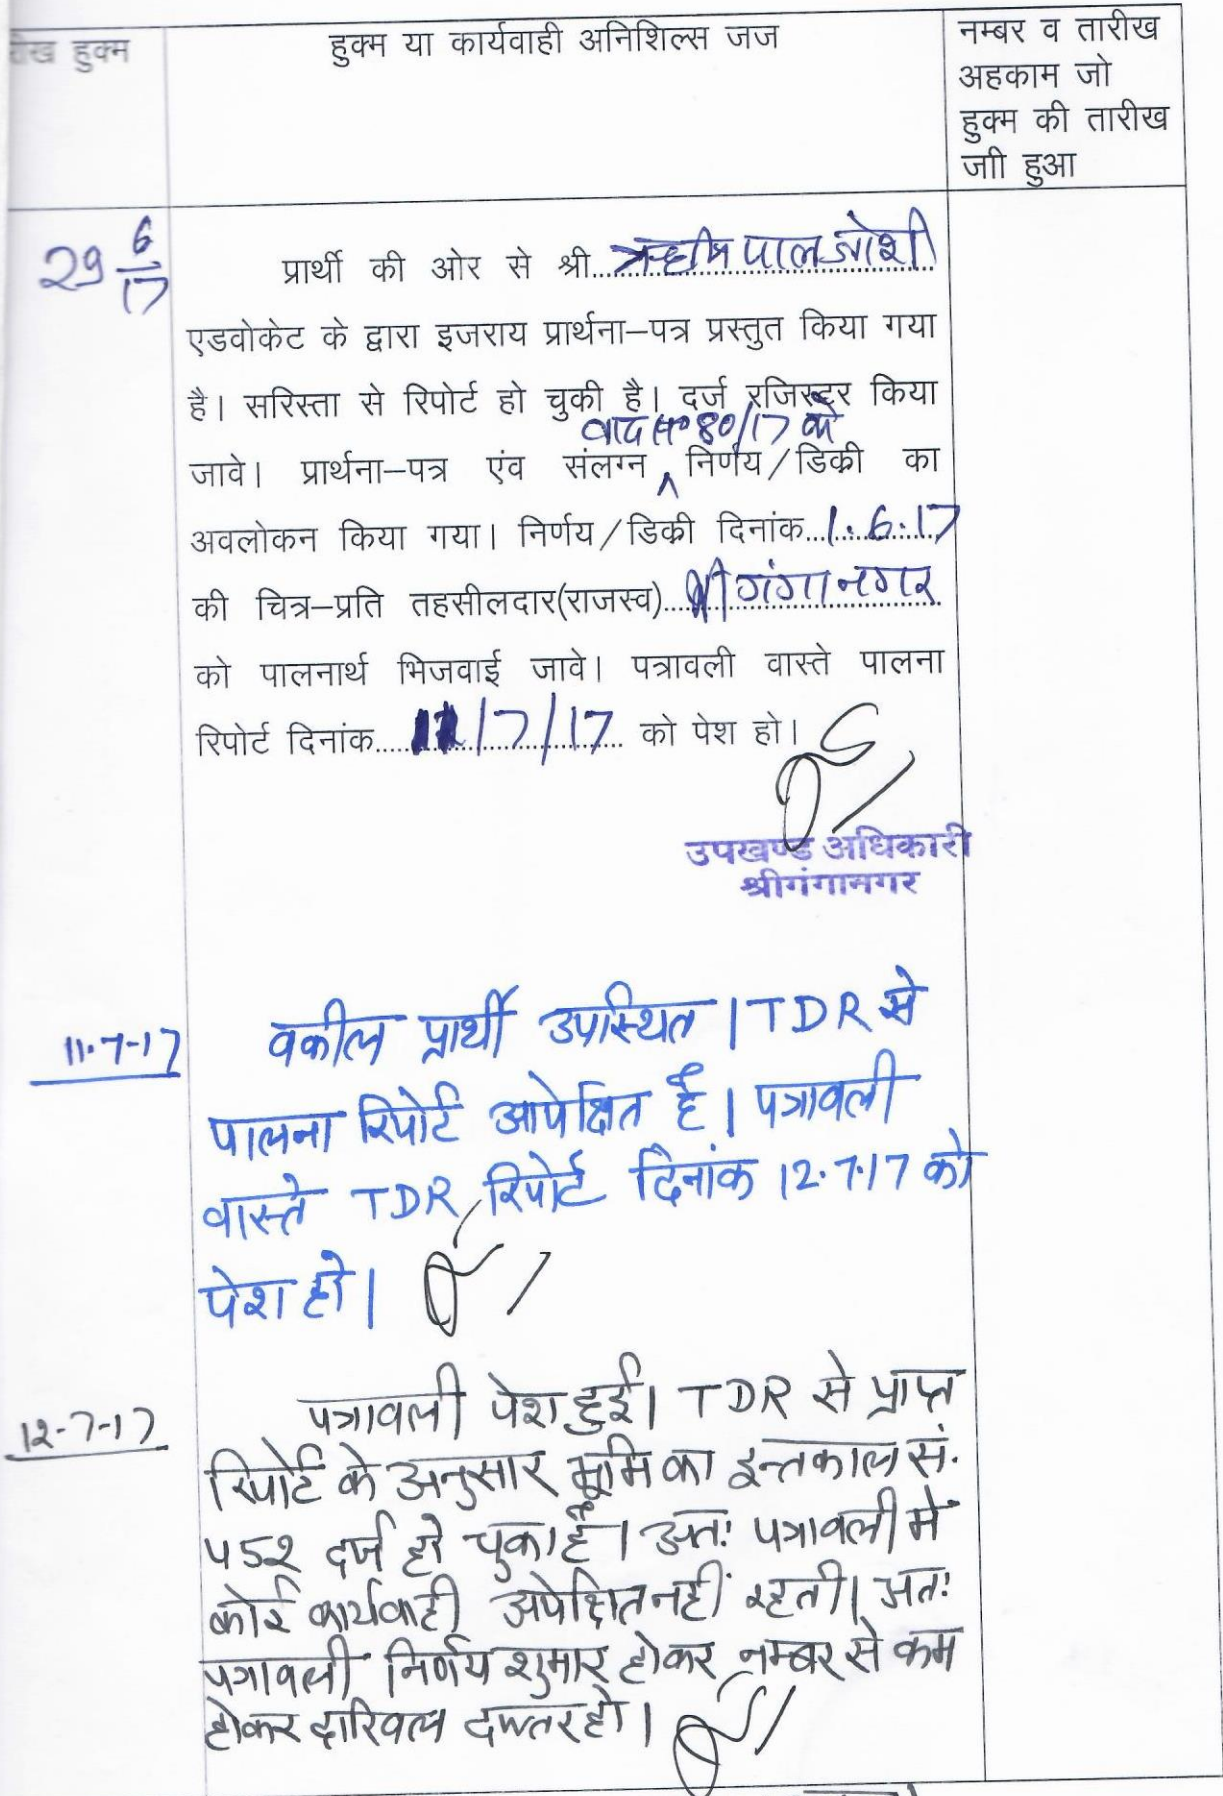 हुक्म
हुक्म या कार्यवाही अनिशिल्स जज
नम्बर व तारीख
अहकाम जो
हुक्म की तारीख
जाी हुआ
29 6/17
प्रार्थी की ओर से श्री पाल जोशी
एडवोकेट के द्वारा इजराय प्रार्थना-पत्र प्रस्तुत किया गया
है। सरिस्ता से रिपोर्ट हो चुकी है। दर्ज रजिस्टर किया
वाद स० 80/17 के
जावे। प्रार्थना-पत्र एंव संलग्न ^ निर्णय/डिक्री का
अवलोकन किया गया। निर्णय/डिक्री दिनांक 1.6.17
की चित्र-प्रति तहसीलदार(राजस्व) श्री गंगानगर
को पालनार्थ भिजवाई जावे। पत्रावली वास्ते पालना
रिपोर्ट दिनांक 11/7/17 को पेश हो।
उपखण्ड अधिकारी
श्रीगंगानगर
11.7-17
वकील प्रार्थी उपस्थित। TDR से
पालना रिपोर्ट आपेक्षित है। पत्रावली
वास्ते TDR रिपोर्ट दिनांक 12.7.17 को
पेश हो।
12-7-17
पत्रावली पेश हुई। TDR से प्राप्त
रिपोर्ट के अनुसार भूमि का इन्तकाल सं.
452 दर्ज हो चुका है। अतः पत्रावली में
कोई कार्यवाही अपेक्षित नहीं रहती। अतः
पत्रावली निर्णय शुमार होकर नम्बर से कम
होकर दाखिल दफ्तर हो।